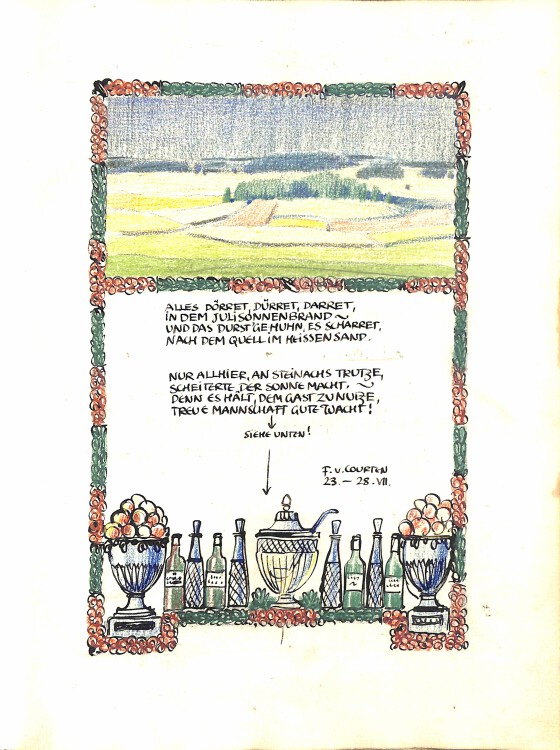 ALLES DÖRRET, DÜRRET, DARRET,
IN DEM JULISONNENBRAND ~
UND DAS DURST'GE HUHN, ES SCHARRET,
NACH DEM QUELL IM HEISSEN SAND.
NUR ALLHIER, AN STEINACHS TRUTZE,
SCHEITERTE DER SONNE MACHT, ~
DENN ES HÄLT, DEM GAST ZU NUTZE,
TREUE MANNSCHAFT GUTE WACHT!
SIEHE UNTEN!
F. v. COURTEN
23. – 28. VII.